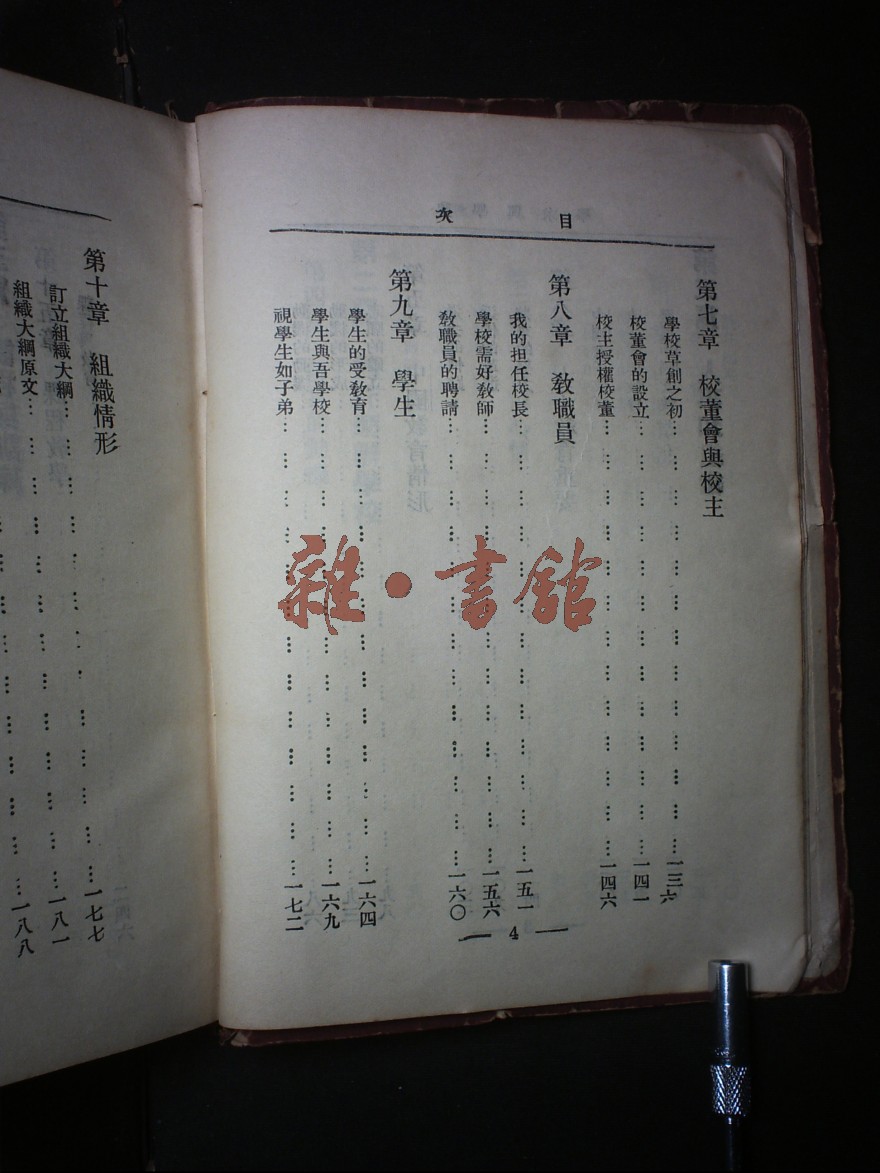 目次
第七章 校董會與校主
學校草創之初… … … … … … … … … … … …一三六
校董會的設立… … … … … … … … … … … …一四一
校主授權校董… … … … … … … … … … … …一四六
第八章 教職員
我的担任校長… … … … … … … … … … … …一五一
學校需好教師… … … … … … … … … … … …一五六
教職員的聘請… … … … … … … … … … … …一六〇
第九章 學生
學生的受教育… … … … … … … … … … … …一六四
學生與吾學校… … … … … … … … … … … …一六九
視學生如子弟… … … … … … … … … … … …一七二
— 4 —
第十章 組織情形
訂立組織大綱… … … … … … … … … … … …一七七
組織大綱原文… … … … … … … … … … … …一八一
… … … … … … … … … … …一八八
雜·書館